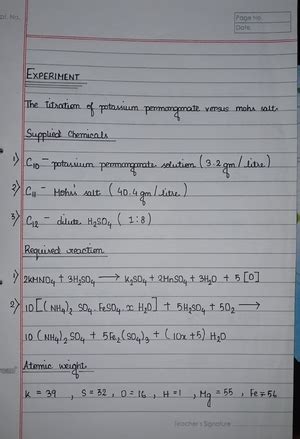 pt. No.
Page No.
Date
EXPERIMENT
The titration of potassium permanganate versus mohr salt.
Supplied Chemicals
1) C10 – potassium permanganate solution (3.2 gm / litre)
2) C11 – Mohr's salt (40.4 gm / litre)
3) C12 – dilute H2SO4 (1:8)
Required reaction
1) 2KMNO4 + 3H2SO4 ⟶ K2SO4 + 2MnSO4 + 3H2O + 5 [O]
2) 10[(NH4)2 SO4. FeSO4. x H2O] + 5H2SO4 + 5O2 ⟶
10 (NH4)2 SO4 + 5Fe2(SO4)3 + (10x+5) H2O
Atomic weight
K = 39 , S = 32 , O = 16 , H = 1 , Mg = 55 , Fe = 56
Teacher's Signature